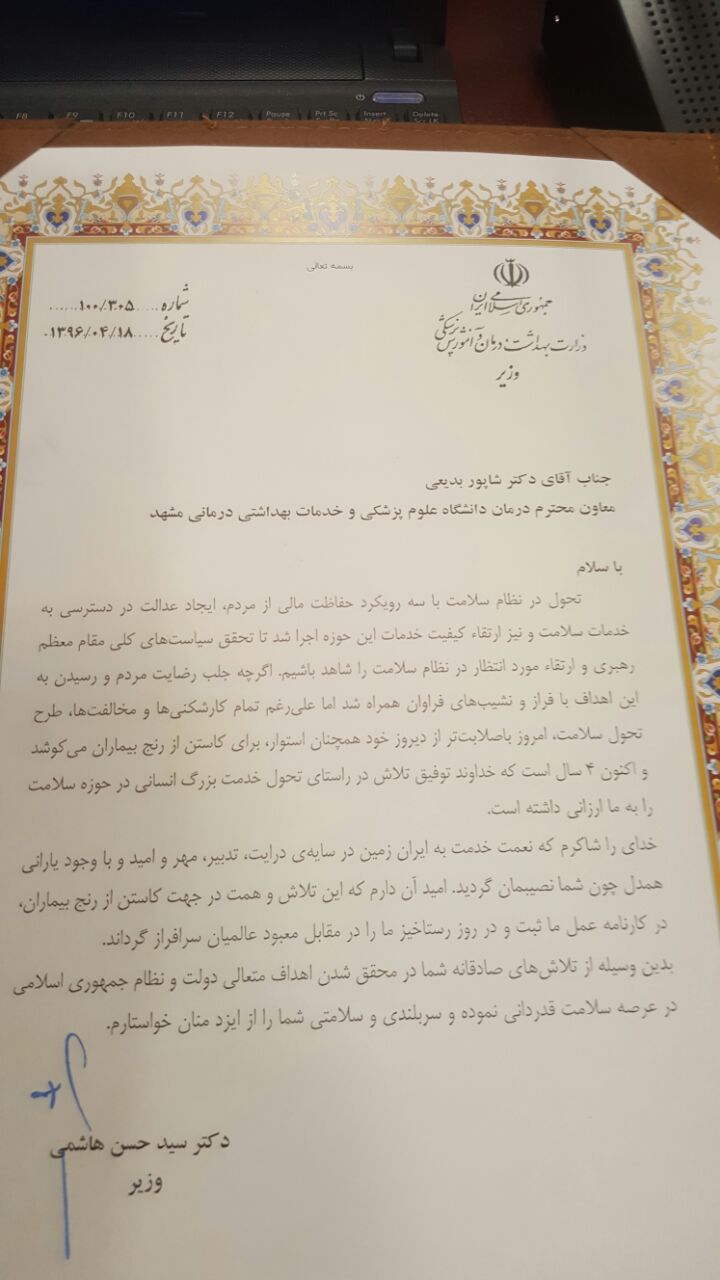 F8 F9 F10 F11 F12 Pause Prt Sc Insert Delete
بسمه تعالی
جمهوری اسلامی ایران
وزارت بهداشت، درمان و آموزش پزشکی
وزیر
شماره.....۱۰۰/۳۰۵......
تاریخ.....۱۳۹۶/۰۴/۱۸.
جناب آقای دکتر شاپور بدیعی
معاون محترم درمان دانشگاه علوم پزشکی و خدمات بهداشتی درمانی مشهد
با سلام
تحول در نظام سلامت با سه رویکرد حفاظت مالی از مردم، ایجاد عدالت در دسترسی به
خدمات سلامت و نیز ارتقاء کیفیت خدمات این حوزه اجرا شد تا تحقق سیاست‌های کلی مقام معظم
رهبری و ارتقاء مورد انتظار در نظام سلامت را شاهد باشیم. اگرچه جلب رضایت مردم و رسیدن به
این اهداف با فراز و نشیب‌های فراوان همراه شد اما علی‌رغم تمام کارشکنی‌ها و مخالفت‌ها، طرح
تحول سلامت، امروز باصلابت‌تر از دیروز خود همچنان استوار، برای کاستن از رنج بیماران می‌کوشد
و اکنون ۴ سال است که خداوند توفیق تلاش در راستای تحول خدمت بزرگ انسانی در حوزه سلامت
را به ما ارزانی داشته است.
خدای را شاکرم که نعمت خدمت به ایران زمین در سایه‌ی درایت، تدبیر، مهر و امید و با وجود یارانی
همدل چون شما نصیبمان گردید. امید آن دارم که این تلاش و همت در جهت کاستن از رنج بیماران،
در کارنامه عمل ما ثبت و در روز رستاخیز ما را در مقابل معبود عالمیان سرافراز گرداند.
بدین وسیله از تلاش‌های صادقانه شما در محقق شدن اهداف متعالی دولت و نظام جمهوری اسلامی
در عرصه سلامت قدردانی نموده و سربلندی و سلامتی شما را از ایزد منان خواستارم.
دکتر سید حسن هاشمی
وزیر